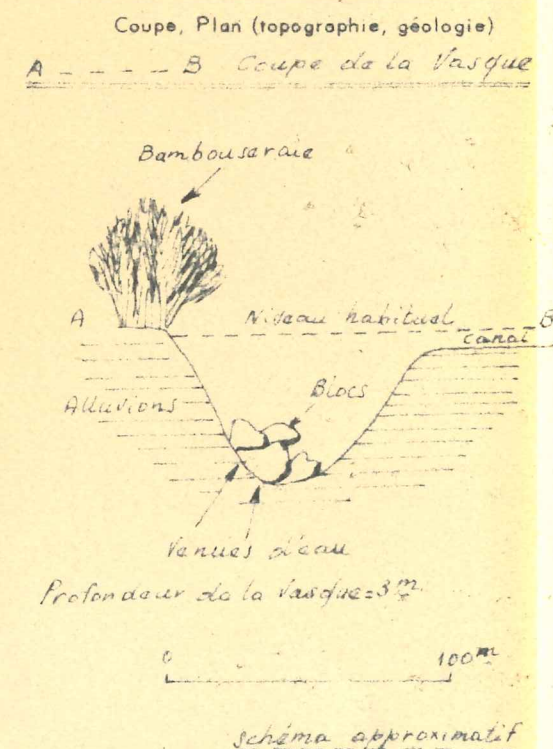 Coupe, Plan (topographie, géologie)
A - - - - - B Coupe de la Vasque
Bambouseraie
A
Niveau habituel
B
canal
Blocs
Alluvions
Venues d'eau
Profondeur de la Vasque = 3 m
0
100 m
schéma approximatif